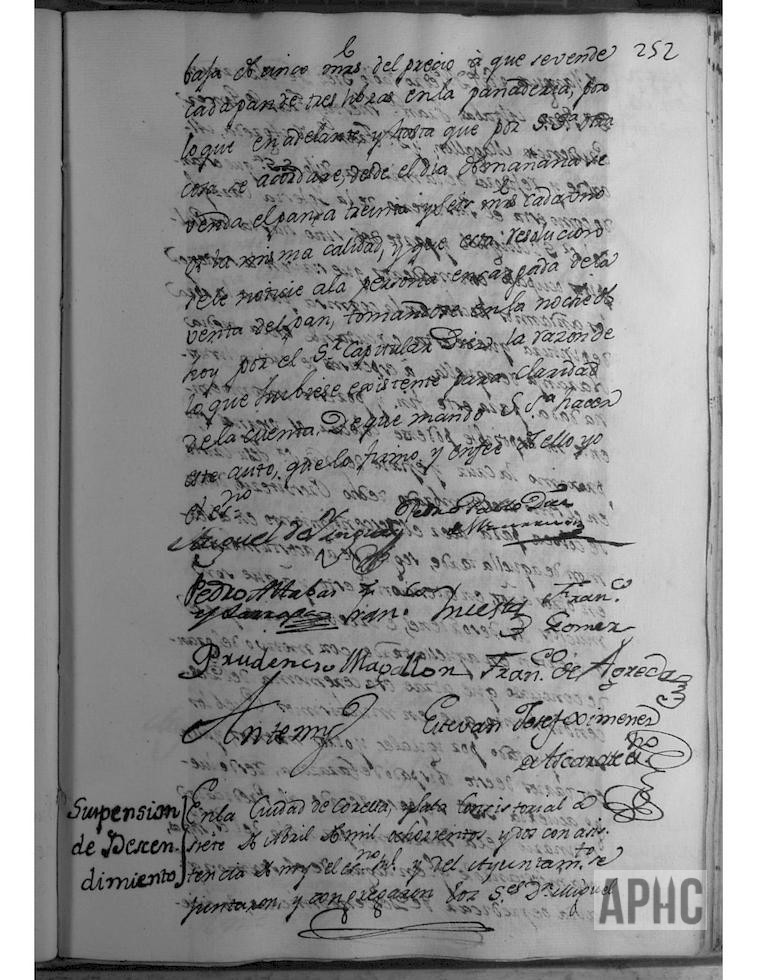 252
baja de cinco mrs. del precio â que se vende
cada pan de tres libras en la panaderia, por
lo que en adelante y hasta que por S.S. otra
cosa se acordare, desde el dia de mañana se
venda el pan a treinta y seis mrs cada uno
de la misma calidad, y que esta resolucion
se le noticie a la persona encargada de la
venta del pan, tomandose en la noche de
hoy por el Sr. Capitular Diez la razon de
lo que hubiese existente para claridad
de la cuenta. De que mandó S Sª hacer
este auto, que lo firmó y en fee de ello yo
el esno
Miguel de
Pedro Pablo Diez
Pedro Alabar
Juan Huesa Franco.
Gomez
Prudencio Magallon, Franco. de Agreda
Antemy
Estevan Josef Ximenez
de Ascarate esno
Suspension
de Descen-
dimiento
En la Ciudad de Corella, y Sala Consistorial a
siete de Abril de mil ochocientos y dos con asis-
tencia de my el esno Rl. y del Ayuntamto. se
juntaron y congregaron los Ses. Dn. Miguel
APHC